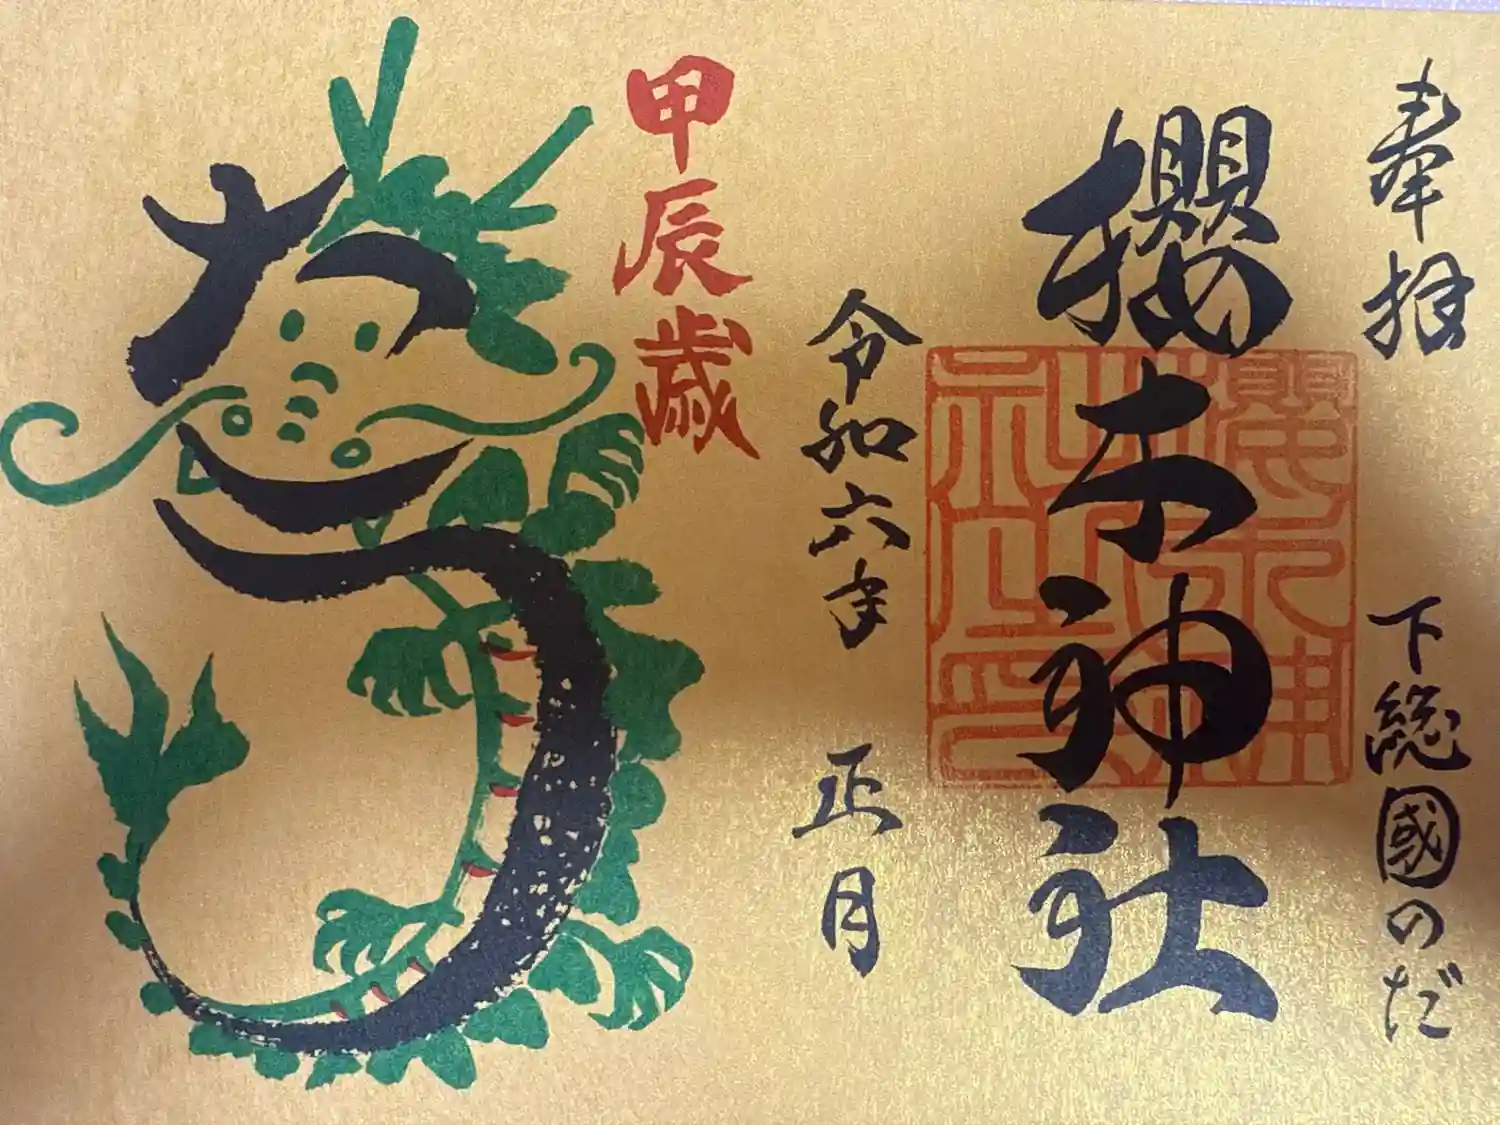 奉拝
下総國のだ
櫻木神社
櫻木神社之印
令和六年 正月
甲辰歳